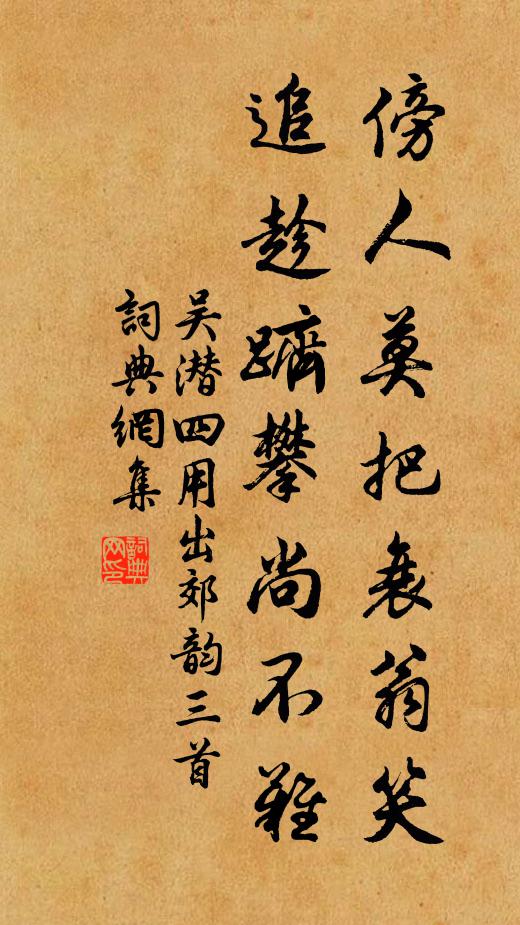 傍人莫把衰翁笑
追趁躋攀尚不難
吴潜四用出郊韵三首
詞典網集
詞典网印